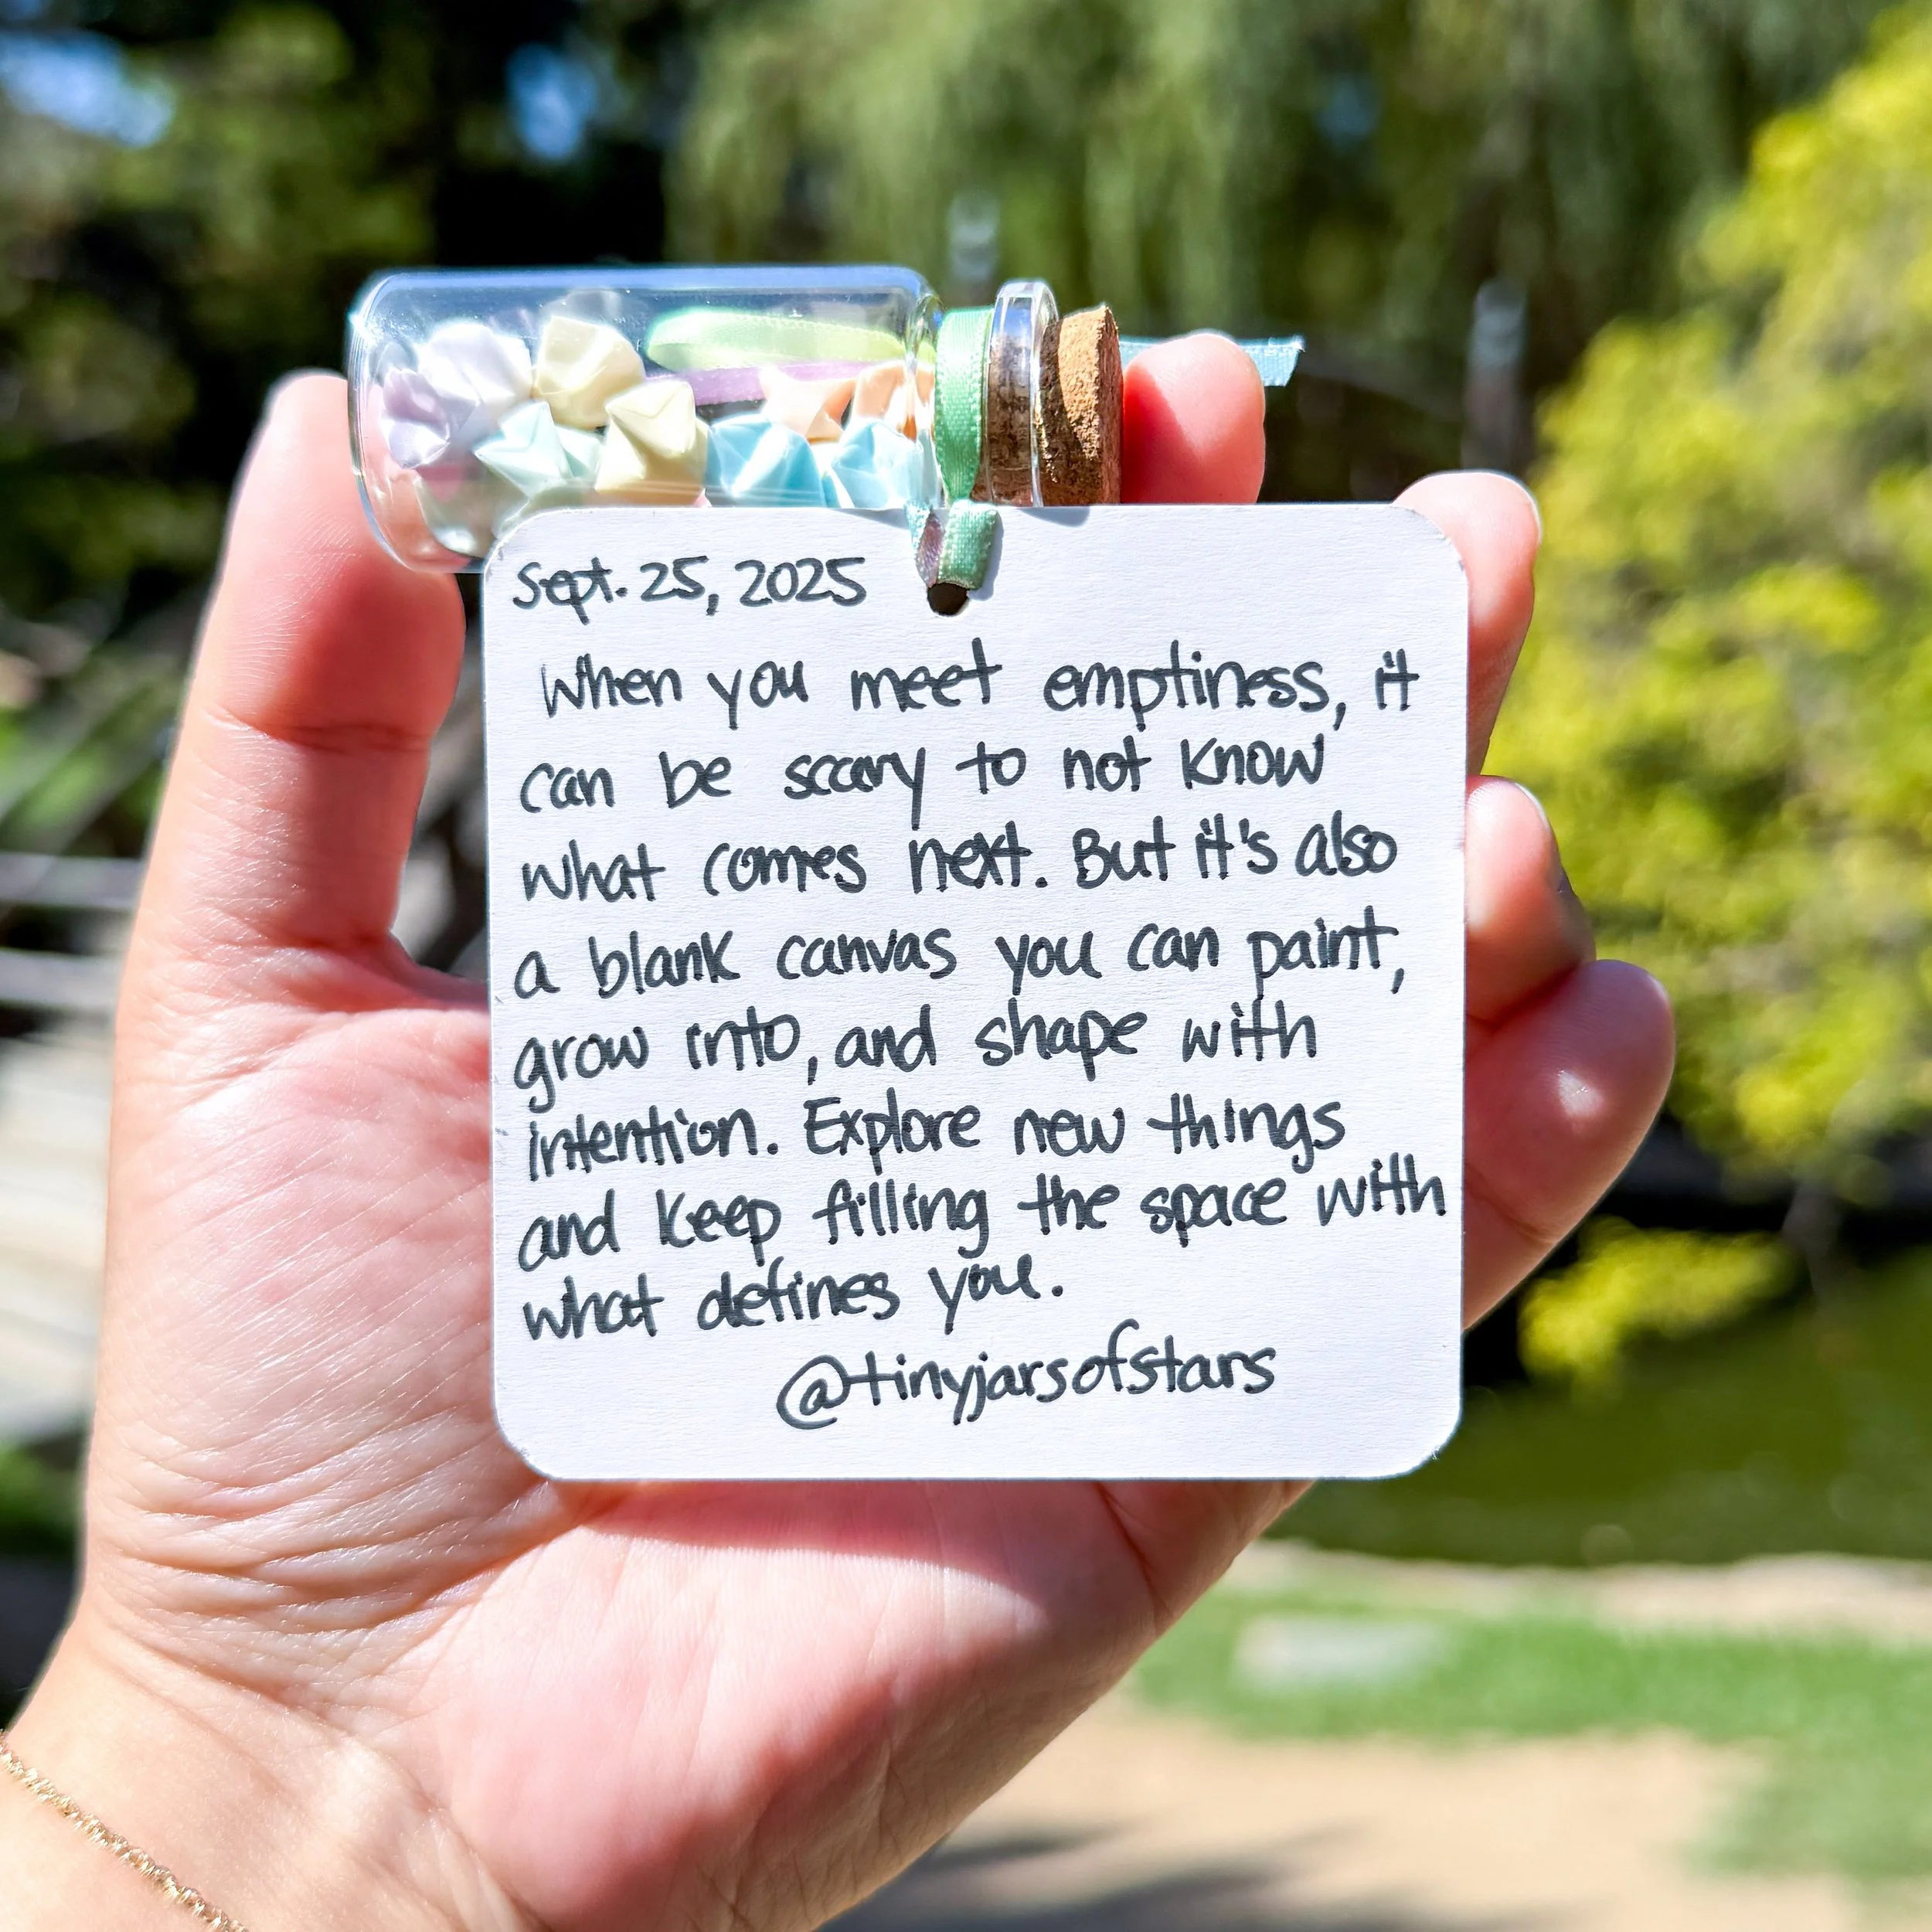 Sept. 25, 2025
When you meet emptiness, it
can be scary to not know
what comes next. But it's also
a blank canvas you can paint,
grow into, and shape with
intention. Explore new things
and keep filling the space with
what defines you.
@tinyjarsofstars